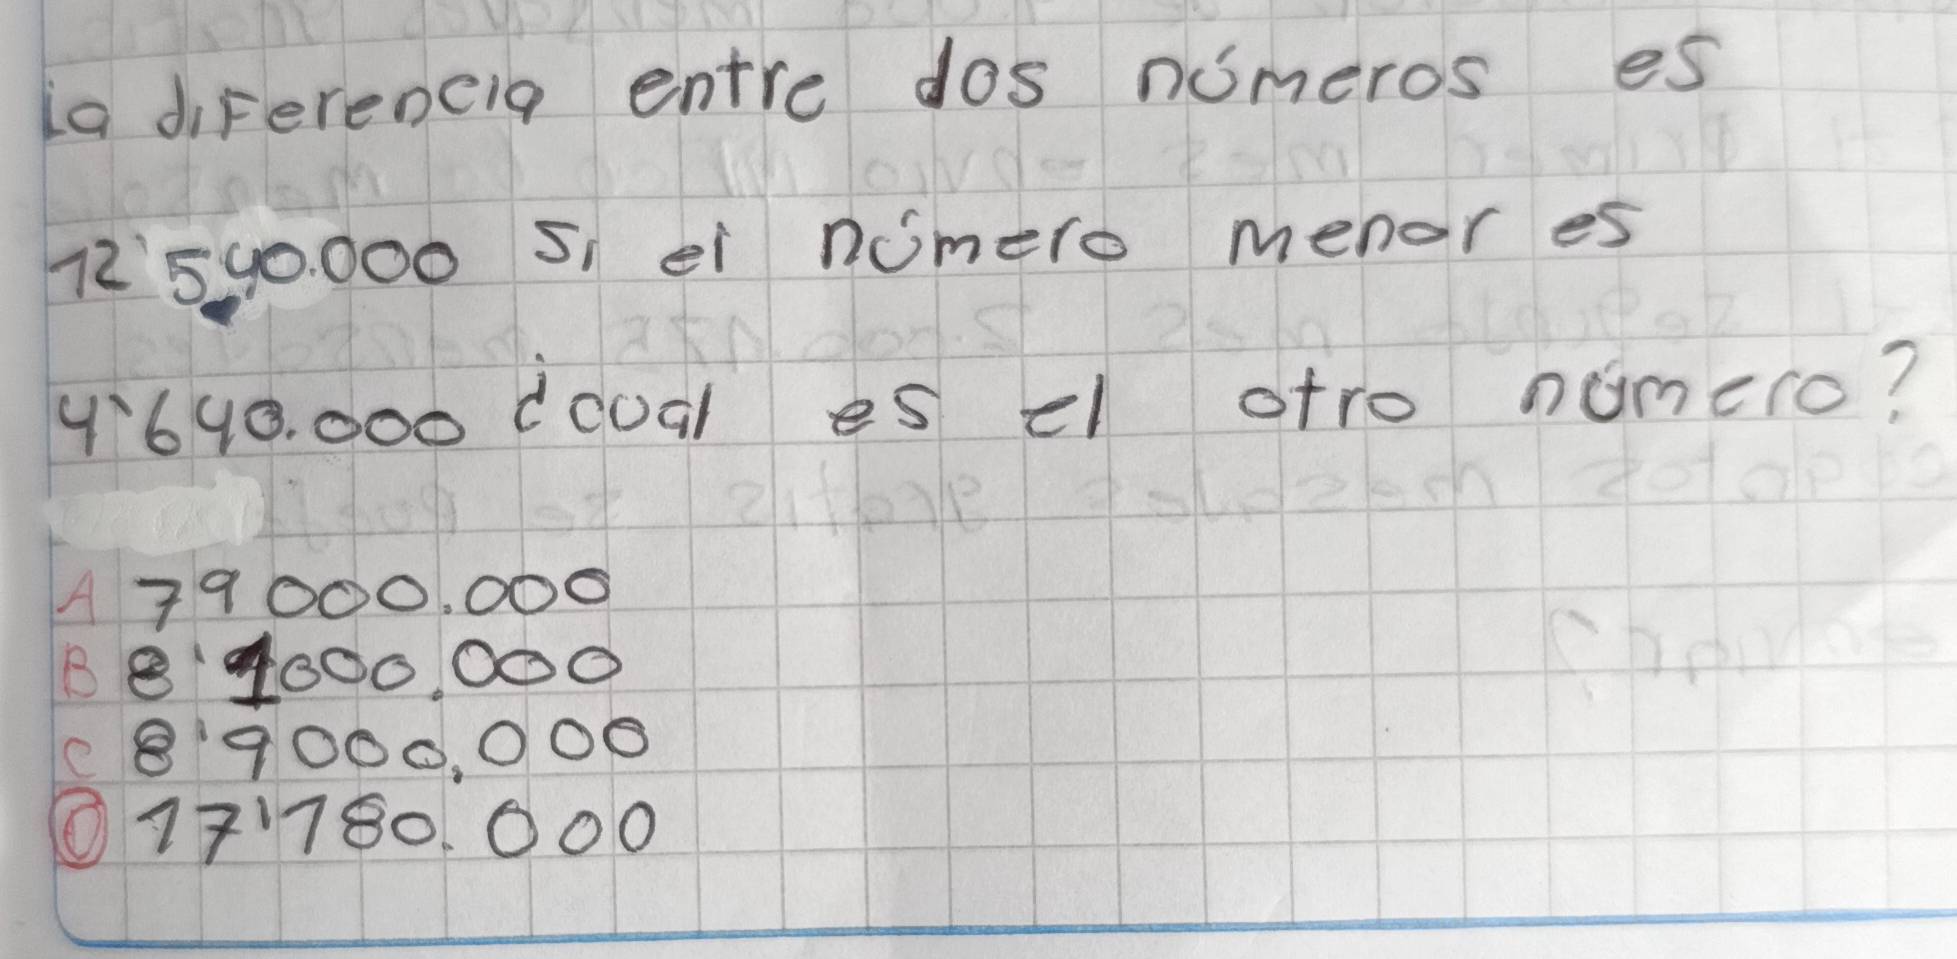 la diferencia entre dos números es
12'540.000 si el número menor es
4'640.000 ¿cual es el otro número?
A 79000.000
B 8'1000.000
C 8'9000,000
D 17'180.000